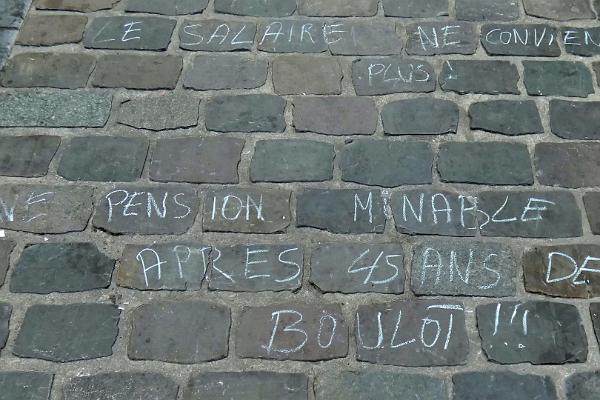 LE SALAIRE NE CONVIEN
PLUS!
NE PENSION MINABLE
APRES 45 ANS DE
BOULOT !!!